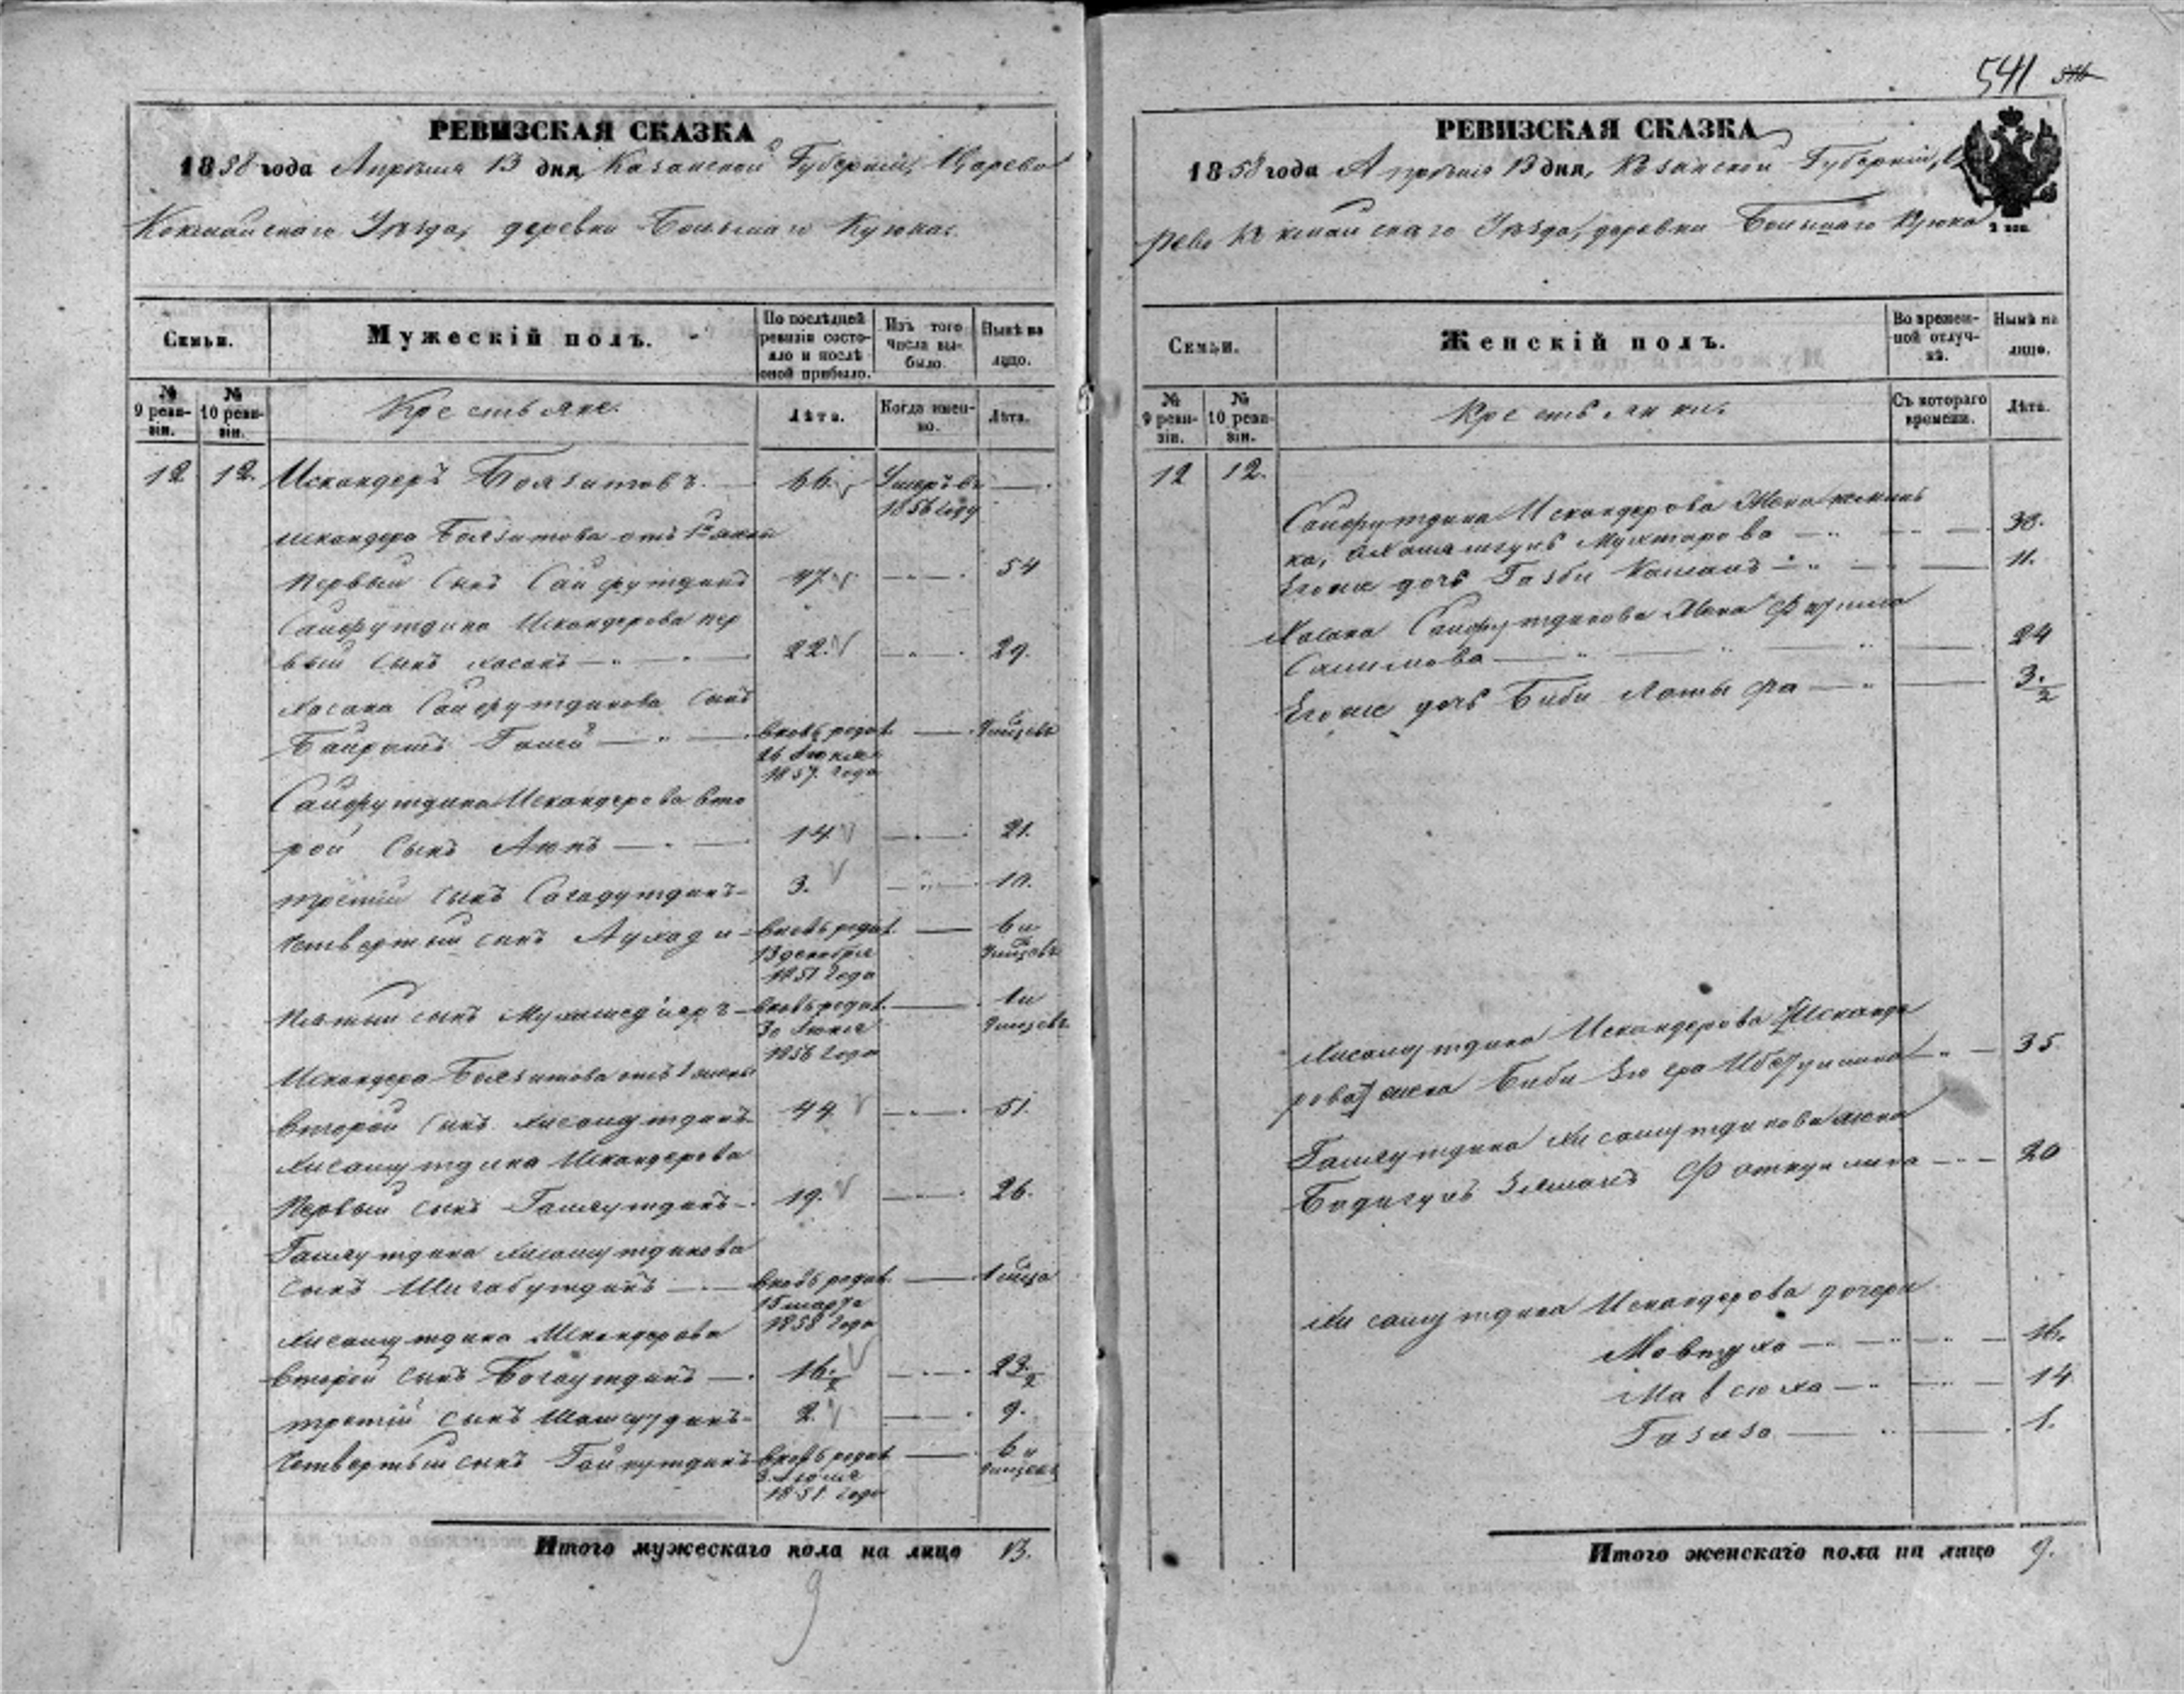 РЕВИЗСКАЯ СКАЗКА
1858 года Апрѣля 13 дня, Казанской Губерніи, Царево
Кокшайскаго Уѣзда, деревни Большаго Куюка.
Семьи.
Мужескій полъ.
По послѣдней ревизіи состояло и послѣ оной прибыло.
Изъ того числа выбыло.
Нынѣ на лицо.
№ 9 ревизіи.
№ 10 ревизіи.
Крестьяне.
Лѣта.
Когда именно.
Лѣта.
12 12. Искандеръ Баязитовъ. 66. Умеръ въ
1856 году
Искандера Баязитова отъ 1й жены
первый сынъ Сайфутдинъ 47. 54
Сайфутдина Искандерова пер
вый сынъ Хасанъ 22. 29.
Хасана Сайфутдинова сынъ
Байрамъ Гамей вновь родив.
26 Іюня
1857. года
Сайфутдина Искандерова вто
рой сынъ Аюпъ 14. 21.
третій сынъ Сагадутдинъ 3. 10.
четвертый сынъ Аухади вновь родив. 6 и
13 декабря
1851 года
пятый сынъ Мухамедіяръ вновь родив. 1 и
30 Іюня
1856 года
Искандера Баязитова отъ 1 жены
второй сынъ Хисамутдинъ 44. 51.
Хисамутдина Искандерова
первый сынъ Гамяутдинъ 19. 26.
Гамяутдина Хисамутдинова
сынъ Шигабутдинъ вновь родив. 1 мѣца
15 марта
1858 года
Хисамутдина Искандерова
второй сынъ Богаутдинъ 16.½ 23.½
третій сынъ Шамсутдинъ 2. 9.
четвертый сынъ Гайнутдинъ вновь родив. 6 и
3 Іюля
1851 года
Итого мужескаго пола на лицо 13.
9
541
РЕВИЗСКАЯ СКАЗКА
1858 года Апрѣля 13 дня, Казанской Губерніи, Ца
рево Кокшайскаго Уѣзда, деревни Большаго Куюка
Семьи.
Женскій полъ.
Во временной отлучкѣ.
Нынѣ на лицо.
№ 9 ревизіи.
№ 10 ревизіи.
Крестьянки.
Съ котораго времени.
Лѣта.
12 12.
Сайфутдина Искандерова жена
Мухтарова 38.
Его же дочь Газби Камалъ 11.
Хасана Сайфутдинова жена
Салимова 24
Его же дочь Биби Латыфа 3.½
Хисамутдина Искандерова (Исканде
рова) жена Биби 35
Гамяутдина Хисамутдинова жена
Бадигулъ Земалъ 20
Хисамутдина Искандерова дочери
Мавтуха 16.
Мавсюха 14
Газиза 1.
Итого женскаго пола на лицо 9.